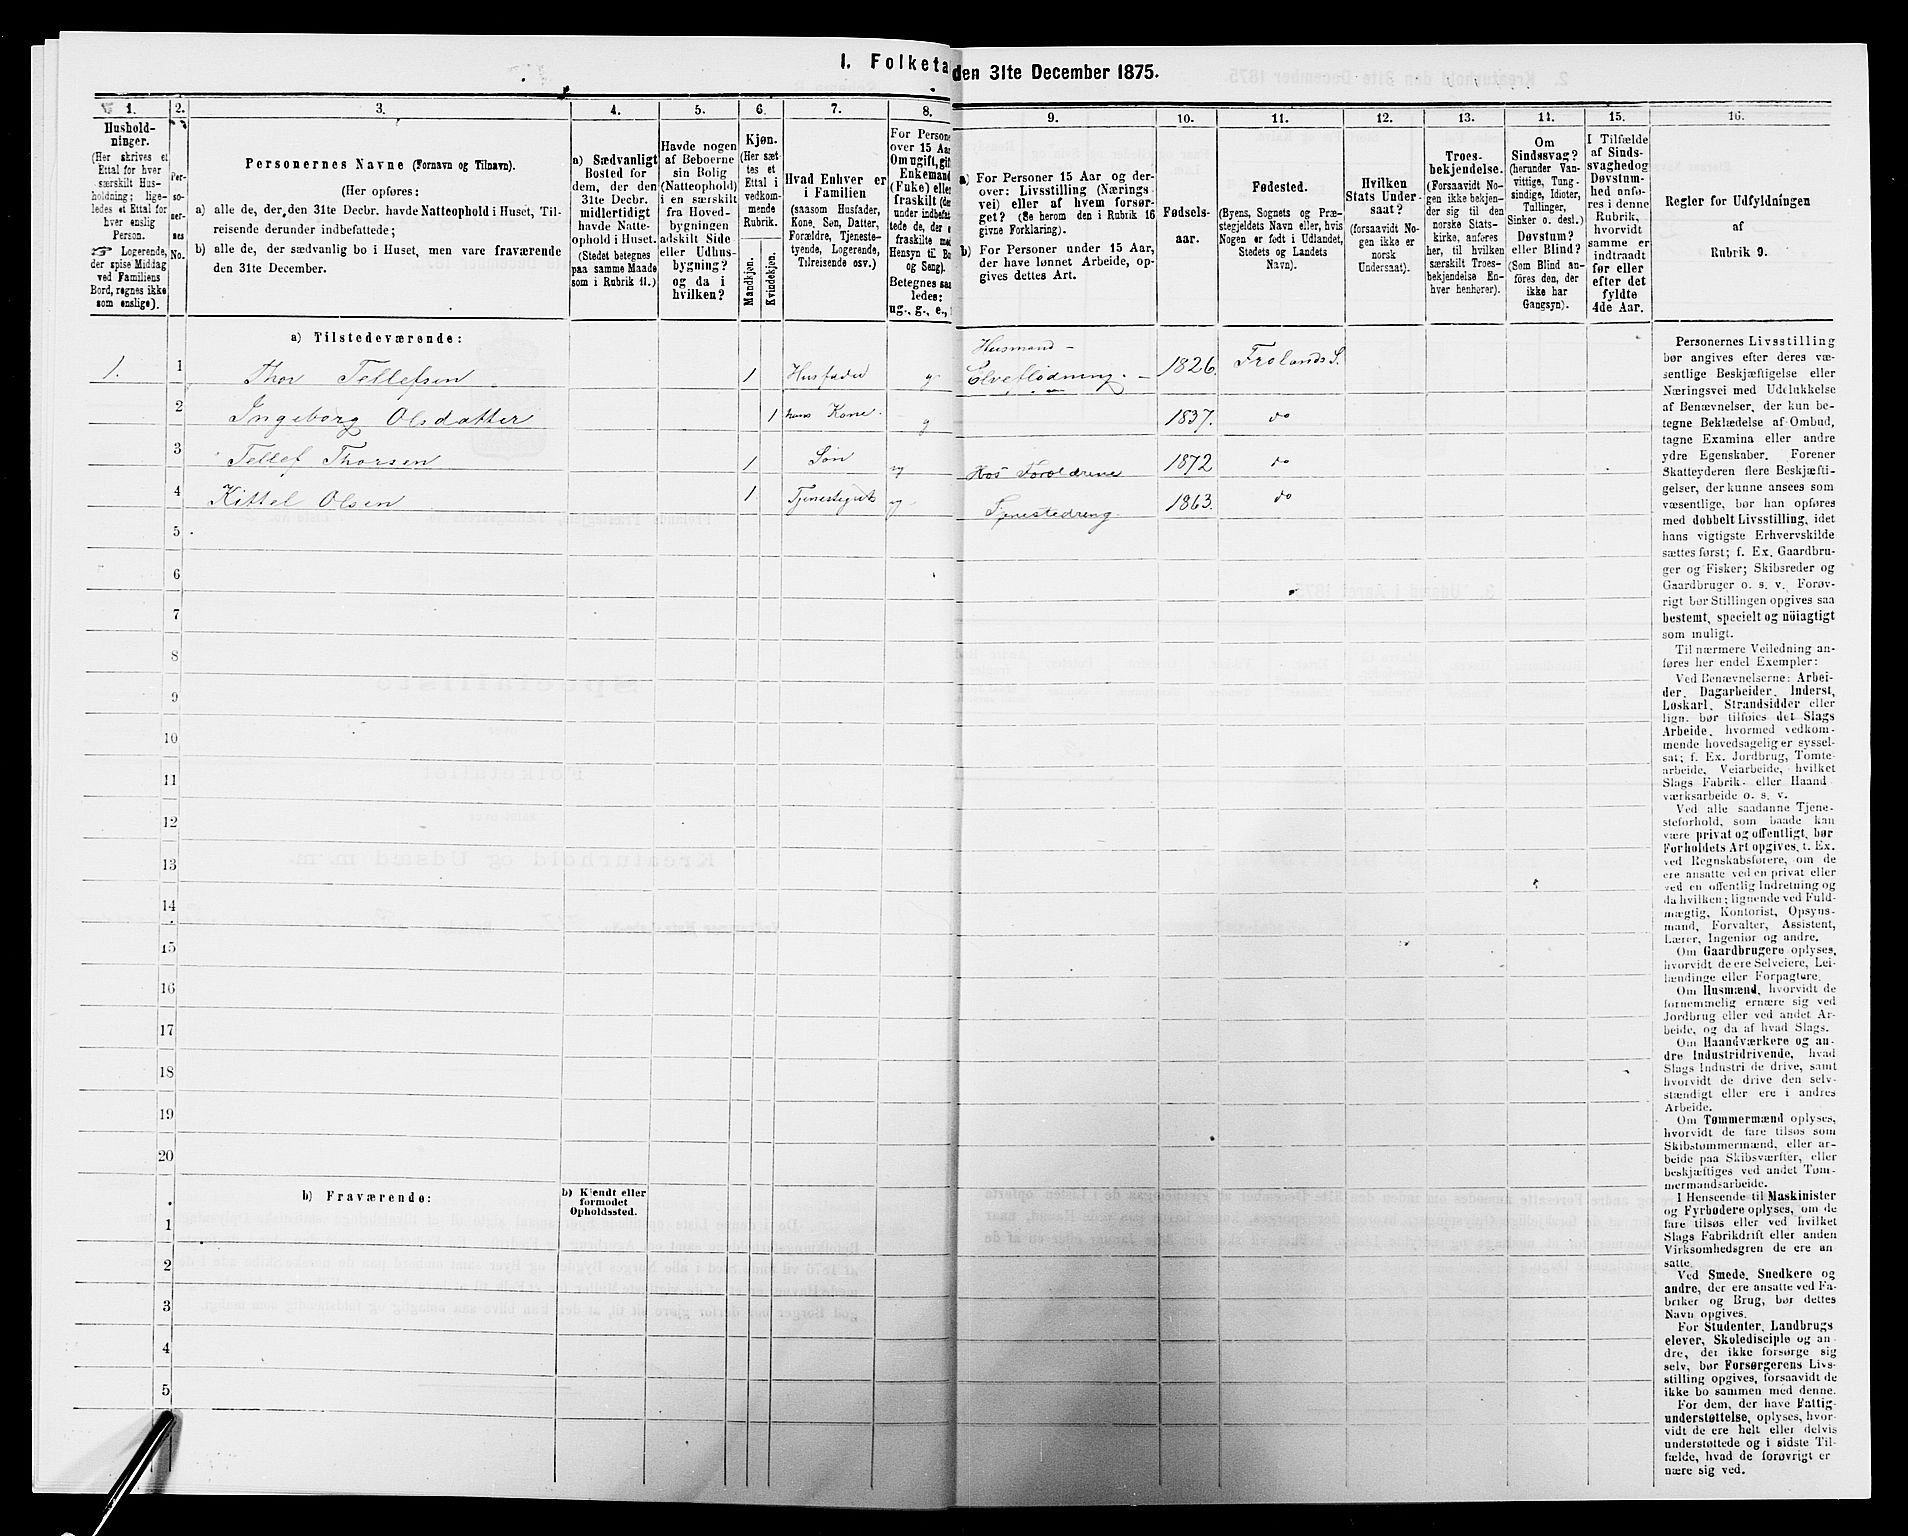 1. Folketa den 31te December 1875.
1. 2. 3. 4. 5. 6. 7. 8. 9. 10. 11. 12. 13. 14. 15. 16.
Hushold-
ninger.
(Her skrives et
Ettal for hver
særskilt Hus-
holdning; lige-
ledes et Ettal for
hver enslig
Person.
☞ Logerende,
der spise Middag
ved Familiens
Bord, regnes ikke
som enslige).
Per-
so-
ner-
nes
No.
Personernes Navne (Fornavn og Tilnavn).
(Her opføres:
a) alle de, der den 31te Decbr. havde Natteophold i Huset, Til-
reisende derunder indbefattede;
b) alle de, der sædvanlig bo i Huset, men vare fraværende
den 31te December.
a) Sædvanligt
Bosted for
dem, der den
31te Decbr.
midlertidigt
havde Natte-
ophold i Huset.
(Stedet betegnes
paa samme Maade
som i Rubrik 11.)
Havde nogen
af Beboerne
sin Bolig
(Natteophold)
i en særskilt
fra Hoved-
bygningen
adskilt Side-
eller Udhus-
bygning?
og da i
hvilken?
Kjøn.
(Her sæt-
tes et
Ettal i
vedkom-
mende
Rubrik.
Mandkjøn.
Kvindekjøn.
Hvad Enhver er
i Familien
(saasom Husfader,
Kone, Søn, Datter,
Forældre, Tjeneste-
tyende, Logerende,
Tilreisende osv.)
For Persone
over 15 Aar
Om ugift, gif
Enkemand
(Fuke) elle
fraskilt (de
under indbefat
tede de, der e
fraskilte m
Hensyn til Bo
og Seng).
Betegnes saa
ledes:
ug., g., e.,
a) For Personer 15 Aar og der-
over: Livsstilling (Nærings
vei) eller af hvem forsør-
get? (Se herom den i Rubrik 16
givne Forklaring).
b) For Personer under 15 Aar,
der have lønnet Arbeide, op-
gives dettes Art.
Fødsels-
aar.
Fødested.
(Byens, Sognets og Præ-
stegjeldets Navn eller, hvis
Nogen er født i Udlandet,
Stedets og Landets
Navn).
Hvilken
Stats Under-
saat?
(forsaavidt No-
gen ikke er
norsk
Undersaat).
Troes-
bekjendelse.
(Forsaavidt No-
gen ikke bekjen-
der sig til den
norske Stats-
kirke, anføres
her, til hvilken
særskilt Troes-
bekjendelse En-
hver henhører).
Om
Sindssvag?
(herunder Van-
vittige, Tung-
sindige, Idioter,
Tullinger,
Sinker o. desl.)
Døvstum?
eller Blind?
(Som Blind an-
føres den, der
ikke har
Gangsyn).
I Tilfælde
af Sinds-
svaghed og
Døvstum-
hed anfø-
res i denne
Rubrik,
hvorvidt
samme er
indtraadt
før eller
efter det
fyldte
4de Aar.
Regler for Udfyldningen
af
Rubrik 9.
a) Tilstedeværende:
1. 1 Thor Tellefsen 1 Husfader g Husmand –
Elveflødning. – 1826. Frolands S.
2 Ingeborg Olsdatter 1 hans Kone. g 1837. do
3 Tellef Thorsen 1 Søn ug Hos Forældrene 1872 do
4 Kittel Olsen 1 ug Tjenestedreng. 1863. do
5
6
7
8
9
10
11
12
13
14
15
16
17
18
19
20
b) Fraværende:
b) Kjendt eller
formodet
Opholdssted.
1
2
3
4
5
Personernes Livsstilling
bør angives efter deres væ-
sentlige Beskjæftigelse eller
Næringsvei med Udelukkelse
af Benævnelser, der kun be-
tegne Beklædelse af Ombud,
tagne Examina eller andre
ydre Egenskaber. Forener
Skatteyderen flere Beskjæfti-
gelser, der kunne ansees som
væsentlige, bør han opføres
med dobbelt Livsstilling, idet
hans vigtigste Erhvervskilde
sættes først; f. Ex. Gaardbru-
ger og Fisker; Skibsreder og
Gaardbruger o. s. v. Forøv-
rigt bør Stillingen opgives saa
bestemt, specielt og nöiagtigt
som muligt.
Til nærmere Veiledning an-
føres her endel Exempler:
Ved Benævnelserne: Arbei-
der, Dagarbeider, Inderst,
Løskarl, Strandsidder eller
lign. bør tilføies det Slags
Arbeide, hvormed vedkom-
mende hovedsagelig er syssel-
sat; f. Ex. Jordbrug, Tomte-
arbeide, Veiarbeide, hvilket
Slags Fabrik- eller Haand
værksarbeide o. s. v.
Ved alle saadanne Tjene-
steforhold, som baade kan
være privat og offentligt, bør
Forholdets Art opgives, f. Ex.
ved Regnskabsførere, om de
ere ansatte ved en privat eller
ved en offentlig Indretning og
da hvilken; lignende ved Fuld-
mægtig, Kontorist, Opsyns-
mand, Forvalter, Assistent,
Lærer, Ingeniør og andre.
Om Gaardbrugere oplyses,
hvorvidt de ere Selveiere, Lei-
lændinge eller Forpagtere.
Om Husmænd, hvorvidt de
fornemmelig ernære sig ved
Jordbrug eller ved andet Ar-
beide, og da af hvad Slags.
Om Haandværkere og an-
dre Industridrivende, hvad
Slags Industri de drive, samt
hvorvidt de drive den selv-
stændigt eller ere i andres
Arbeide.
Om Tømmermænd oplyses,
hvorvidt de fare tilsøs som
Skibstømmermænd, eller ar-
beide paa Skibsværfter, eller
beskjæftiges ved andet Tøm-
mermandsarbeide.
I Henseende til Maskinister
og Fyrbødere oplyses, om de
fare tilsøs eller ved hvilket
Slags Fabrikdrift eller anden
Virksomhedsgren de ere an
satte.
Ved Smede, Snedkere og
andre, der ere ansatte ved Fa-
briker og Brug, bør dettes
Navn opgives.
For Studenter, Landbrugs
elever, Skoledisciple og an-
dre, der ikke forsørge sig
selv, bør Forsørgerens Livs-
stilling opgives, forsaavidt de
ikke bo sammen med denne.
For dem, der have Fattig-
understøttelse, oplyses, hvor-
vidt de ere helt eller delvis
understøttede og i sidste Til-
fælde, hvad de forøvrigt er
nære sig ved.